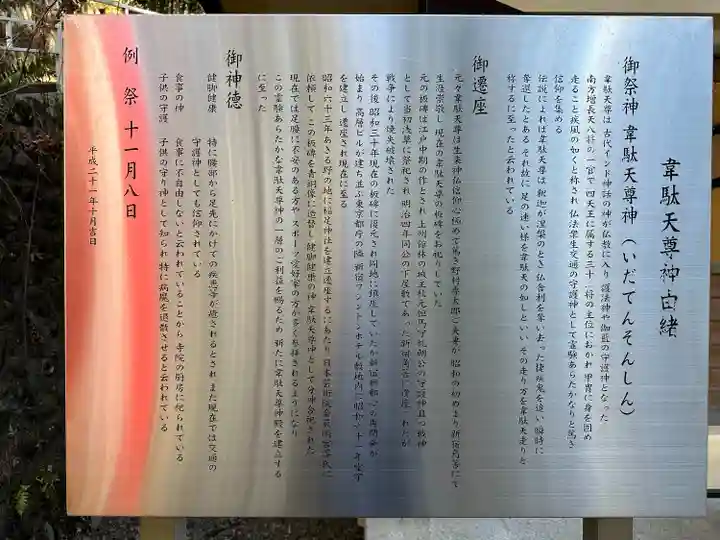 韋駄天尊神由緒
御祭神 韋駄天尊神（いだてんそんしん）
韋駄天尊は 古代インド神話の神が仏教に入り 護法神や 伽藍の守護神となった
南方増長天八将の一官で 四天王に属する三十二将の主位におかれ 甲冑に身を固め
走ること疾風の如くと称され 仏法衆生交通の守護神として霊験あらたかなりと篤き
信仰を集める
伝説によれば韋駄天尊は 釈迦が涅槃のとき 仏舎利を奪い去った捷疾鬼を追い 瞬時に
奪還したとある それ故に 足の速い様を韋駄天の如しといい その走り方を韋駄天走りと
称するに至ったと云われている
御遷座
元々韋駄天尊は生来神仏信仰心極めて篤き野村専太郎ご夫妻が 昭和の初めより新宿角筈にて
生涯崇敬し 現在の韋駄天尊の板碑をお祀りしていた
元の板碑は江戸中期の作とされ 上州館林の城主秋元但馬守礼朝公の守護神且つ戦神
として当初浅草に祭祀され 明治四年同公の下屋敷であった新宿角筈に遷座 されたが
戦争により焼失破壊された
その後 昭和三十年現在の板碑に復元され同地に鎮座していたが新宿新都心の再開発が
始まり 高層ビルが建ち並ぶ東京都庁の隣 新宿ワシントンホテル敷地内に昭和六十一年堂宇
を建立し 遷座され現在に至る
昭和六十三年あきる野の地に福足神社を建立遷座するにあたり 日本芸術院会員
依頼して この板碑を青銅像に造替し 健脚健康の神 韋駄天尊神として分神合祀された
現在では足腰に不安のある方や スポーツ愛好家の方が多く参拝されるようになり
この霊験あらたかな韋駄天尊神の一層のご利益を賜るため 新たに韋駄天尊神殿を建立する
に至った
御神徳
健脚健康 特に腰部から足先にかけての疾患等が癒されるとされ また現在では交通の
守護神としても信仰されている
食事の神 食事に不自由しないと云われていることから 寺院の厨房に祀られている
子供の守護 子供の守り神として知られ 特に病魔を退散させると云われている
例祭 十一月八日
平成二十一年十月吉日